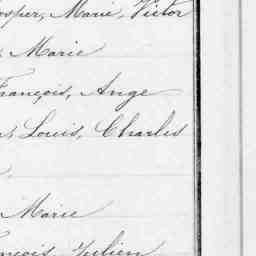 osper, Marie, Victor
Marie
François, Ange
Louis, Charles
Marie
nçois, Julien